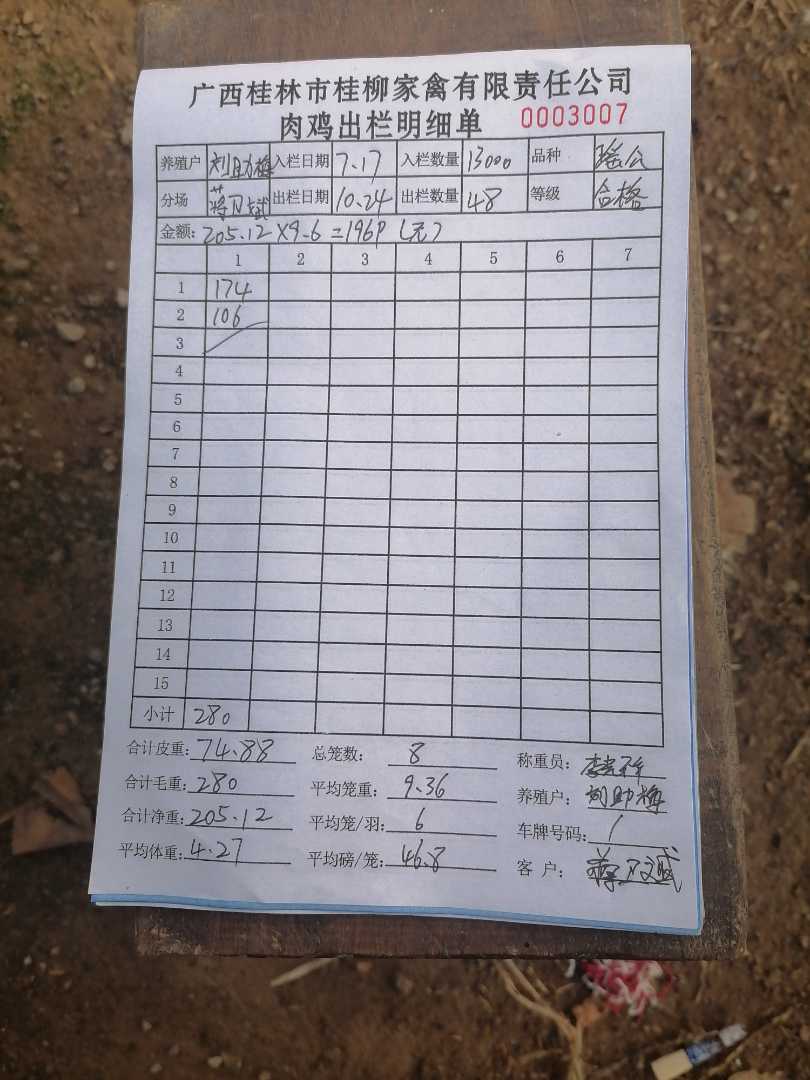 广西桂林市桂柳家禽有限责任公司
肉鸡出栏明细单 0003007
养殖户 刘助梅 入栏日期 7.17 入栏数量 13000 品种 瑶公
分场 出栏日期 10.24 出栏数量 48 等级 合格
金额: 205.12×9.6=1969(元)
1 2 3 4 5 6 7
1 174
2 106
3
4
5
6
7
8
9
10
11
12
13
14
15
小计 280
合计皮重: 74.88 总笼数: 8 称重员:
合计毛重: 280 平均笼重: 9.36 养殖户: 刘助梅
合计净重: 205.12 平均笼/羽: 6 车牌号码: /
平均体重: 4.27 平均磅/笼: 46.8 客户: